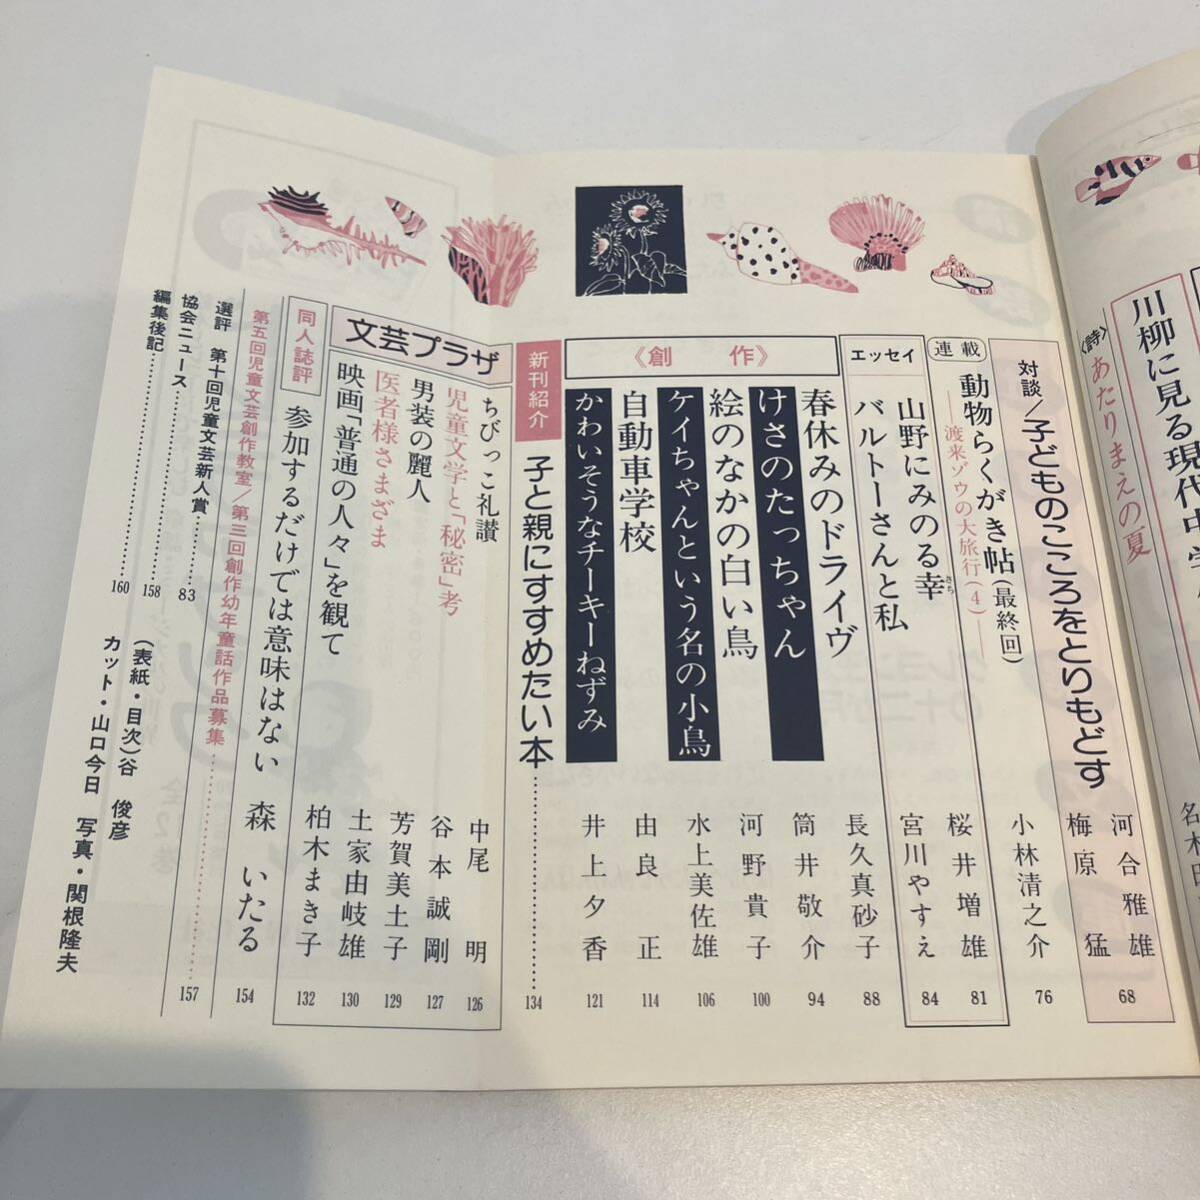 川柳に見る現代中学
〈詩〉あたりまえの夏
対談/子どものこころをとりもどす 河合雅雄 梅原 猛 68
連載 動物らくがき帖(最終回) 小林清之介 76
―渡来ゾウの大旅行(4)―
エッセイ
山野にみのる幸 桜井増雄 81
さち
バルトーさんと私 宮川やすえ 84
《創作》
春休みのドライヴ 長久真砂子 88
けさのたっちゃん 筒井敬介 94
絵のなかの白い鳥 河野貴子 100
ケイちゃんという名の小鳥 水上美佐雄 106
自動車学校 由良 正 114
かわいそうなチーキーねずみ 井上夕香 121
新刊紹介 子と親にすすめたい本 134
文芸プラザ
ちびっこ礼讃 中尾 明 126
児童文学と「秘密」考 谷本誠剛 127
男装の麗人 芳賀美土子 129
医者様さまざま 土家由岐雄 130
映画「普通の人々」を観て 柏木まき子 132
同人誌評 参加するだけでは意味はない 森 いたる 154
第五回児童文芸創作教室/第三回創作幼年童話作品募集 157
選評 第十回児童文芸新人賞 83
協会ニュース 158
編集後記 160
(表紙・目次)谷 俊彦
カット・山口今日 写真・関根隆夫